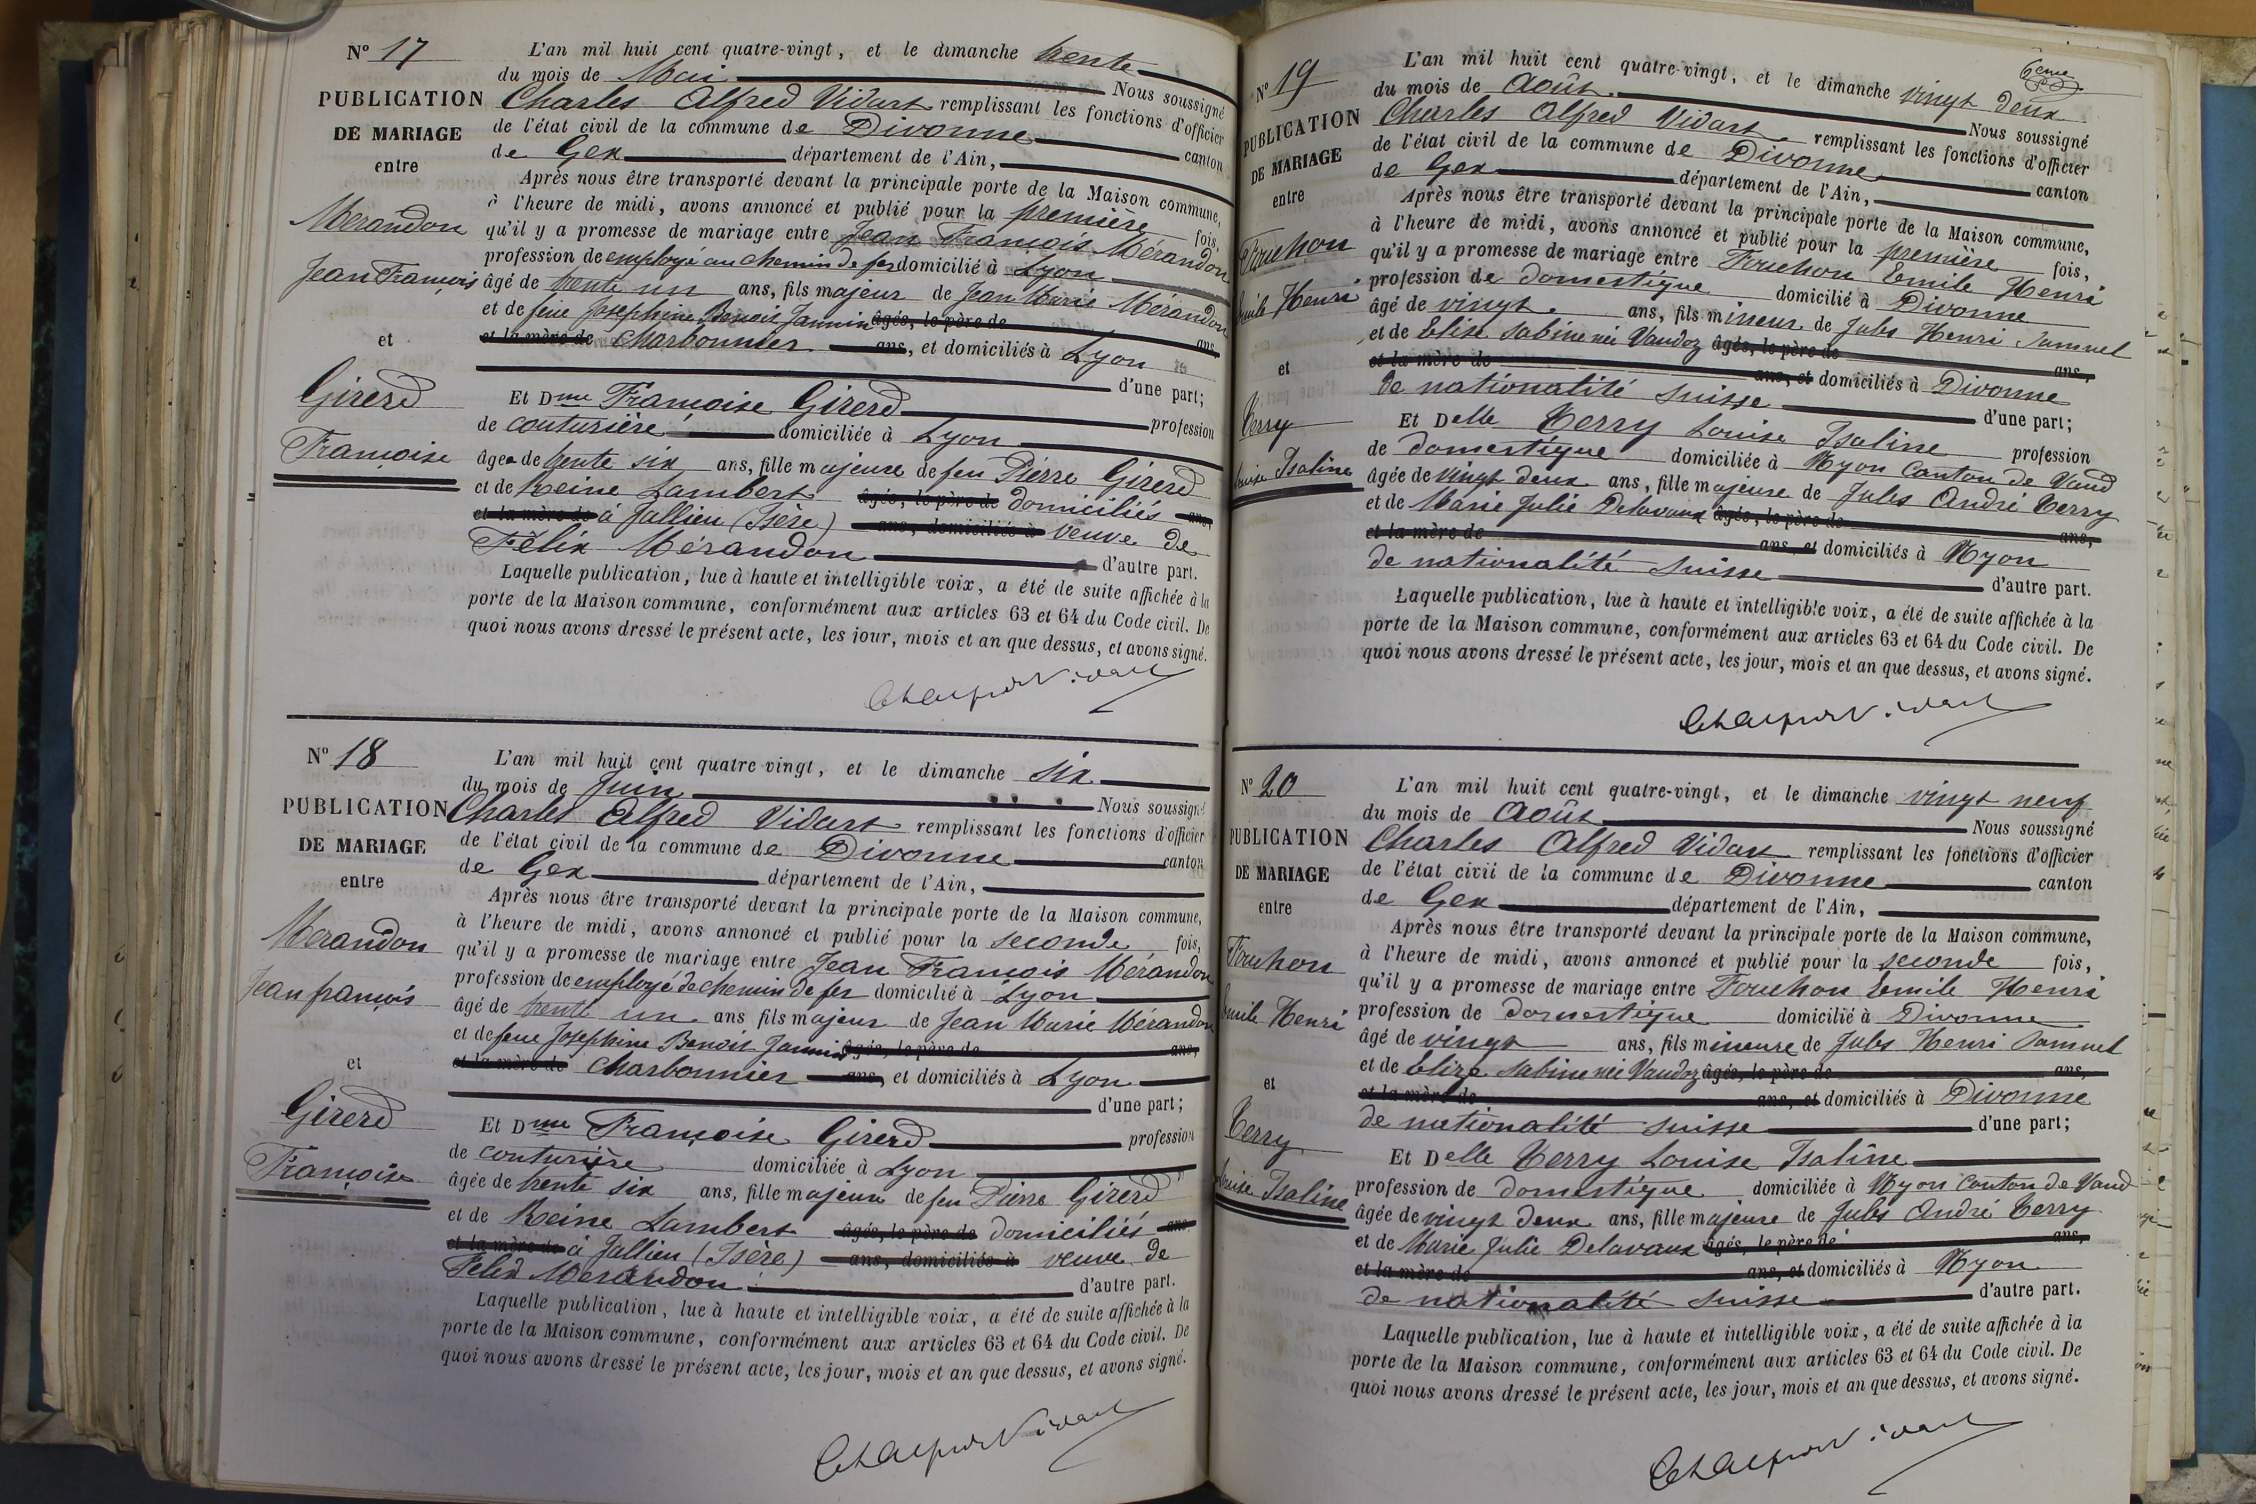 N° 17
PUBLICATION
DE MARIAGE
entre
Merandon
Jean François
et
Girerd
Françoise
L'an mil huit cent quatre-vingt, et le dimanche trente
du mois de Mai Nous soussigné
Charles Alfred Vidart remplissant les fonctions d'officier
de l'état civil de la commune de Divonne canton
de Gex département de l'Ain,
Après nous être transporté devant la principale porte de la Maison commune,
à l'heure de midi, avons annoncé et publié pour la première fois,
qu'il y a promesse de mariage entre Jean François Mérandon
profession de employé au chemin de fer domicilié à Lyon
âgé de trente un ans, fils majeur de Jean Marie Mérandon
et de feue Josephine Benoit Jannin âgés, le père de ans,
et la mère de Charbonnier ans, et domiciliés à Lyon
d'une part;
Et Dme Françoise Girerd profession
de couturière domiciliée à Lyon
âgée de trente six ans, fille majeure de feu Pierre Girerd
et de Reine Lambert âgés, le père de domiciliés ans,
et la mère de à Jallieu (Isère) ans, domiciliés à veuve de
Félix Mérandon d'autre part.
Laquelle publication, lue à haute et intelligible voix, a été de suite affichée à la
porte de la Maison commune, conformément aux articles 63 et 64 du Code civil. De
quoi nous avons dressé le présent acte, les jour, mois et an que dessus, et avons signé.
N° 18
PUBLICATION
DE MARIAGE
entre
Merandon
Jean françois
et
Girerd
Françoise
L'an mil huit cent quatre-vingt, et le dimanche six
du mois de Juin Nous soussigné
Charles Alfred Vidart remplissant les fonctions d'officier
de l'état civil de la commune de Divonne canton
de Gex département de l'Ain,
Après nous être transporté devant la principale porte de la Maison commune,
à l'heure de midi, avons annoncé et publié pour la seconde fois,
qu'il y a promesse de mariage entre Jean François Mérandon
profession de employé de chemin de fer domicilié à Lyon
âgé de trente un ans fils majeur de Jean Marie Mérandon
et de feue Josephine Benoit Jannin âgés, le père de ans,
et la mère de Charbonnier ans, et domiciliés à Lyon
d'une part;
Et Dme Françoise Girerd profession
de couturière domiciliée à Lyon
âgée de trente six ans, fille majeure de feu Pierre Girerd
et de Reine Lambert âgés, le père de domiciliés ans
et la mère de à Jallieu (Isère) ans, domiciliés à veuve de
Felix Merandon d'autre part.
Laquelle publication, lue à haute et intelligible voix, a été de suite affichée à la
porte de la Maison commune, conformément aux articles 63 et 64 du Code civil. De
quoi nous avons dressé le présent acte, les jour, mois et an que dessus, et avons signé.
6eme
N° 19
PUBLICATION
DE MARIAGE
entre
Fouchou
Emile Henri
et
Terry
Louise Isaline
L'an mil huit cent quatre-vingt, et le dimanche vingt deux
du mois de Août Nous soussigné
Charles Alfred Vidart remplissant les fonctions d'officier
de l'état civil de la commune de Divonne canton
de Gex département de l'Ain,
Après nous être transporté devant la principale porte de la Maison commune,
à l'heure de midi, avons annoncé et publié pour la première fois,
qu'il y a promesse de mariage entre Fouchou Emile Henri
profession de domestique domicilié à Divonne
âgé de vingt ans, fils mineur de Jules Henri Samuel
et de Elise Sabine née Vaudoz âgés, le père de ans,
et la mère de ans, et domiciliés à Divonne
de nationalité suisse d'une part;
Et Delle Terry Louise Isaline profession
de domestique domiciliée à Nyon Canton de Vaud
âgée de vingt deux ans, fille majeure de Jules André Terry
et de Marie Julie Delavaux âgés, le père de ans,
et la mère de ans, et domiciliés à Nyon
de nationalité suisse d'autre part.
Laquelle publication, lue à haute et intelligible voix, a été de suite affichée à la
porte de la Maison commune, conformément aux articles 63 et 64 du Code civil. De
quoi nous avons dressé le présent acte, les jour, mois et an que dessus, et avons signé.
N° 20
PUBLICATION
DE MARIAGE
entre
Fouchou
Emile Henri
et
Terry
Louise Isaline
L'an mil huit cent quatre-vingt, et le dimanche vingt neuf
du mois de Août Nous soussigné
Charles Alfred Vidart remplissant les fonctions d'officier
de l'état civil de la commune de Divonne canton
de Gex département de l'Ain,
Après nous être transporté devant la principale porte de la Maison commune,
à l'heure de midi, avons annoncé et publié pour la seconde fois,
qu'il y a promesse de mariage entre Fouchou Emile Henri
profession de domestique domicilié à Divonne
âgé de vingt ans, fils mineure de Jules Henri Samuel
et de Elize Sabine née Vaudoz âgés, le père de ans,
et la mère de ans, et domiciliés à Divonne
de nationalité suisse d'une part;
Et Delle Terry Louise Isaline
profession de domestique domiciliée à Nyon Canton de Vaud
âgée de vingt deux ans, fille majeure de Jules André Terry
et de Marie Julie Delavaux âgés, le père de ans,
et la mère de ans, et domiciliés à Nyon
de nationalité suisse d'autre part.
Laquelle publication, lue à haute et intelligible voix, a été de suite affichée à la
porte de la Maison commune, conformément aux articles 63 et 64 du Code civil. De
quoi nous avons dressé le présent acte, les jour, mois et an que dessus, et avons signé.